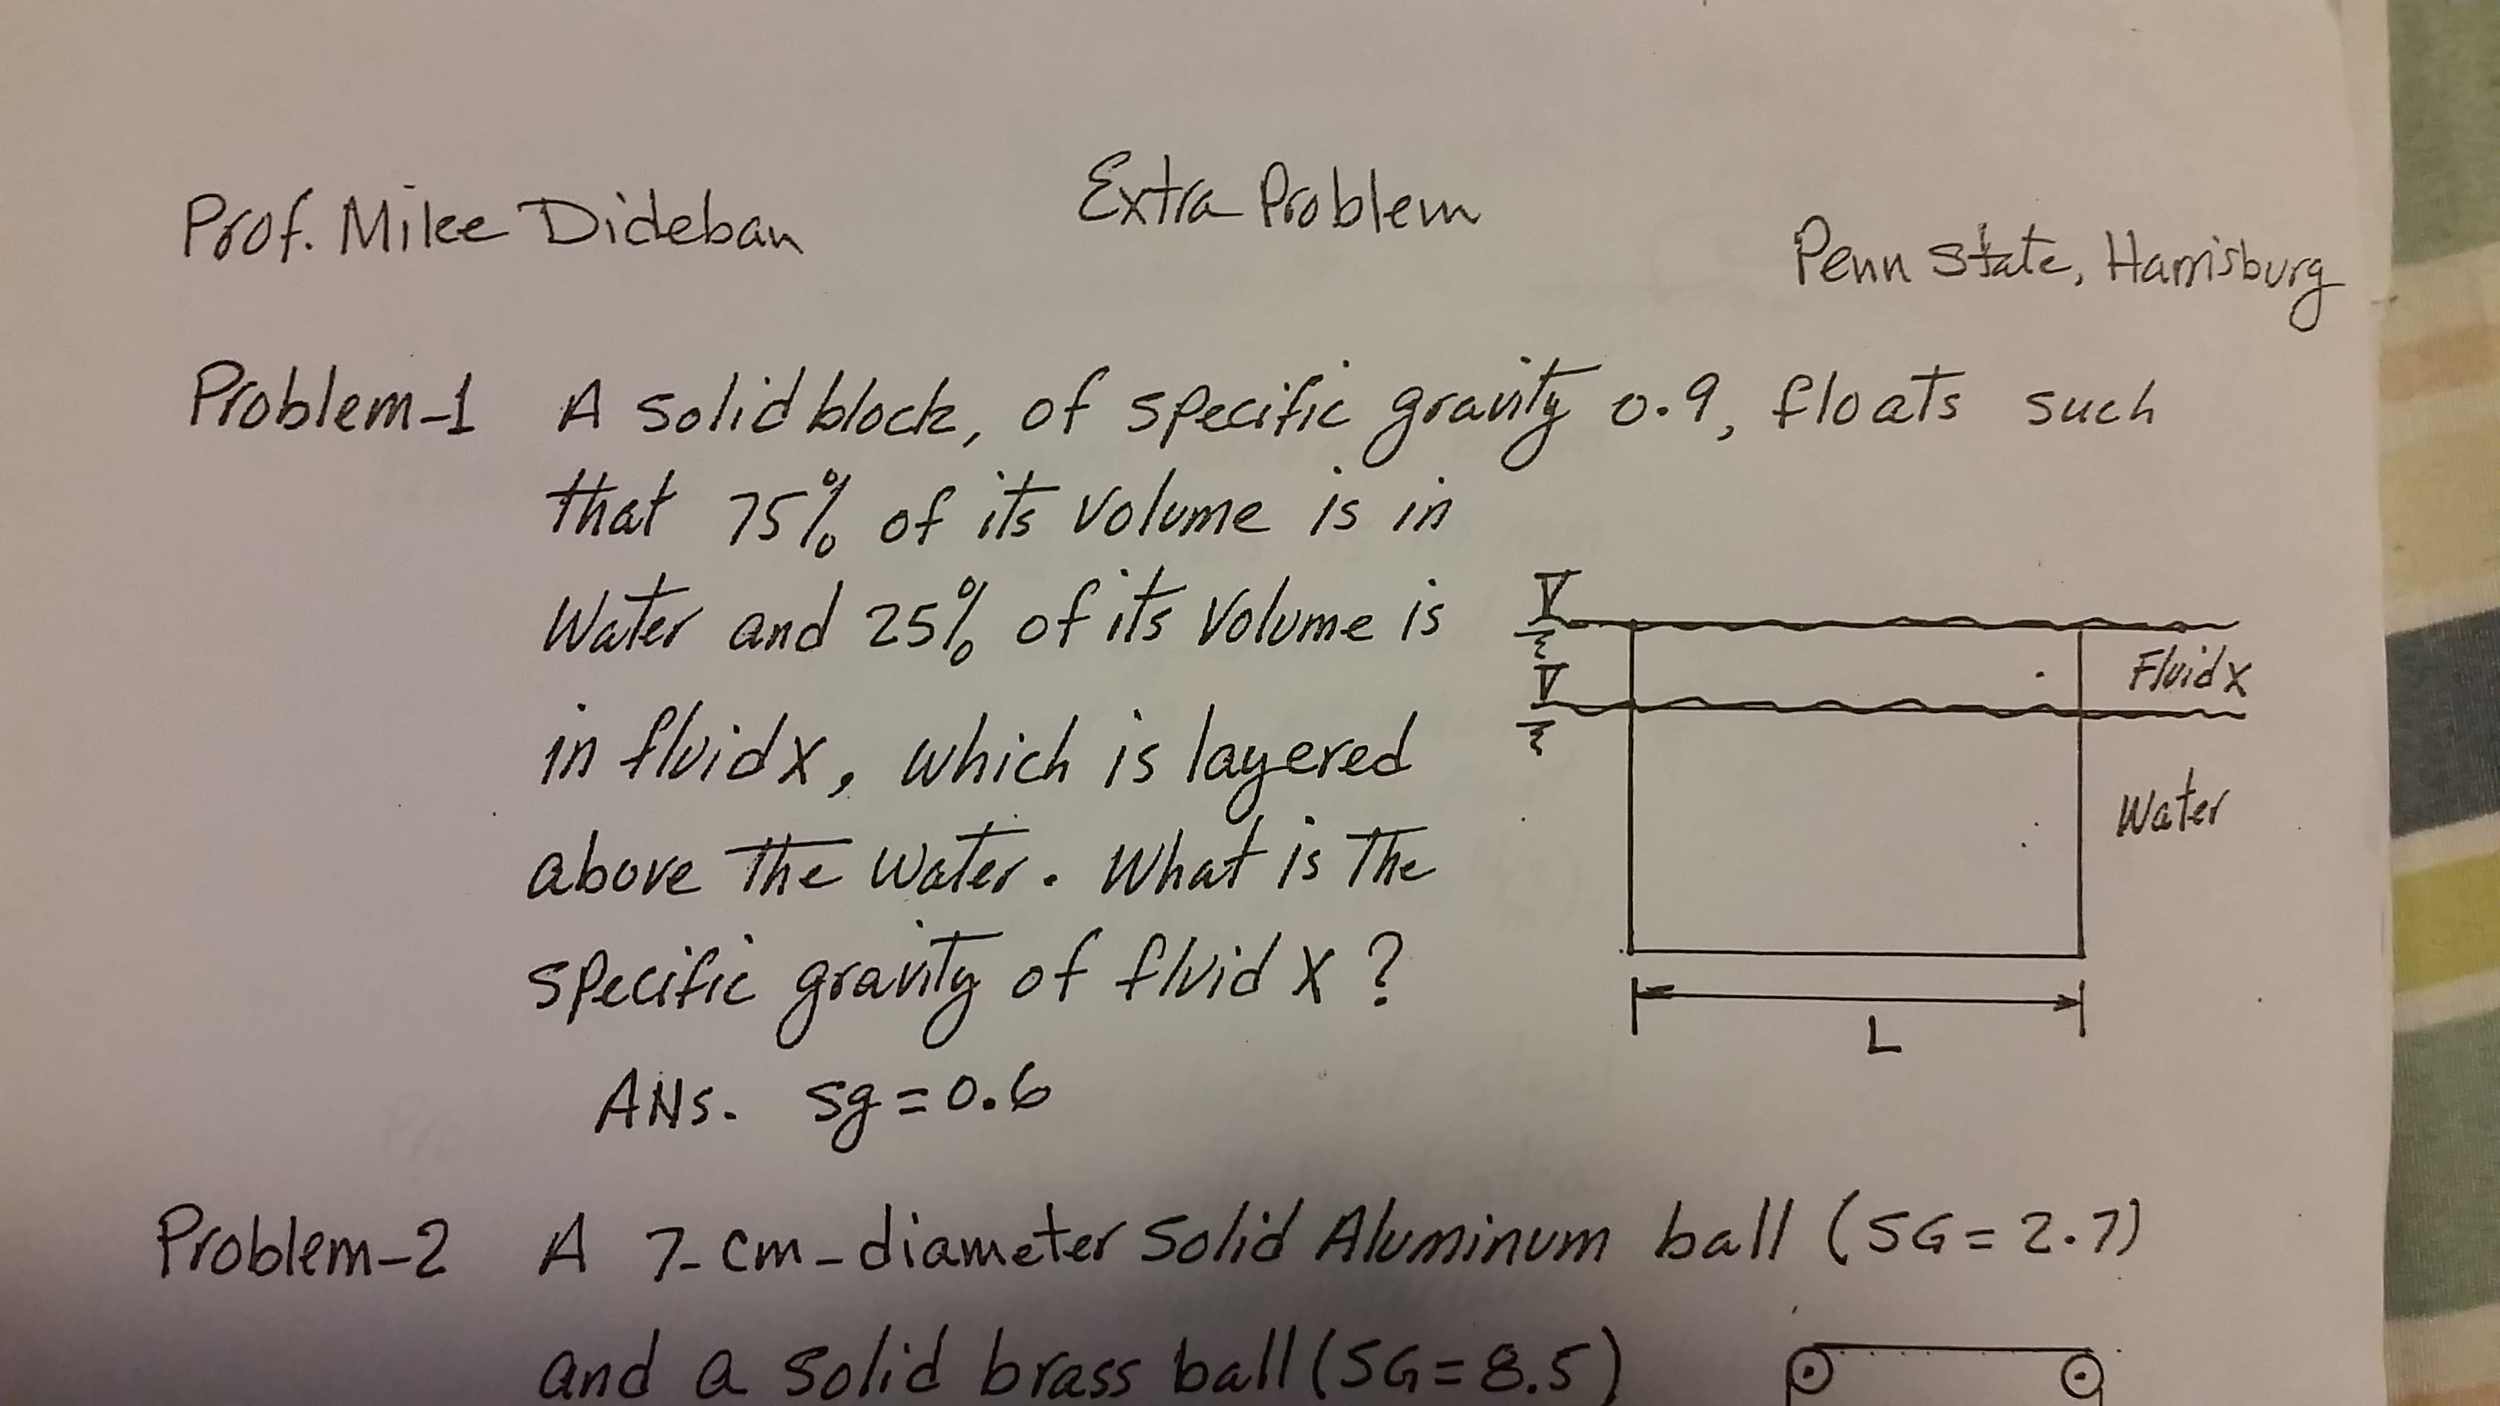 Extra Problem
Prof. Mike Dideban
Penn State, Harrisburg
Problem-1 A solid block, of specific gravity 0.9, floats such
that 75% of its volume is in
Water and 25% of its volume is
in fluid x, which is layered
above the water. What is the
specific gravity of fluid x?
ANS. sg=0.6
Fluid x
Water
L
Problem-2 A 7-cm-diameter solid Aluminum ball (SG=2.7)
and a solid brass ball (SG=8.5)